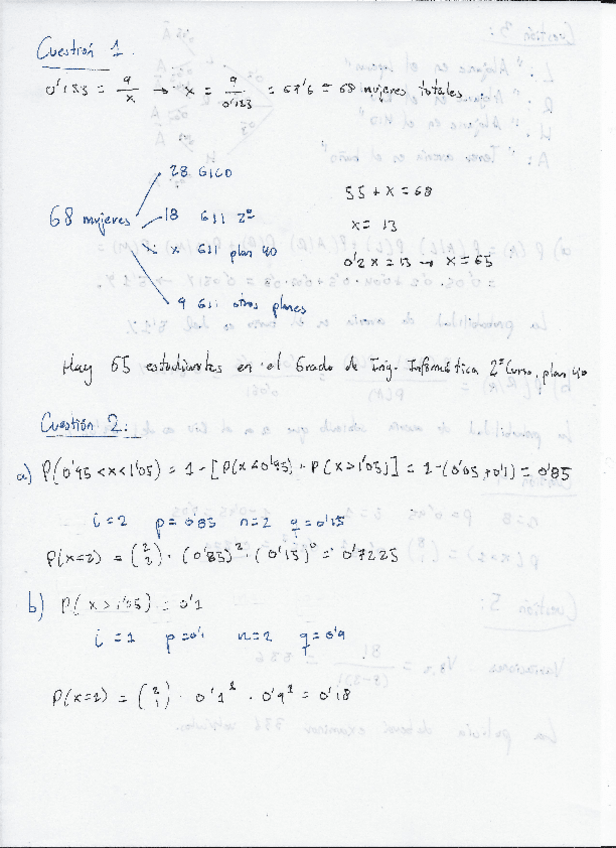 Cuestión 1
0'133 = 9/x → x = 9/0'133 = 67'6 ≈ 68 mujeres totales.
68 mujeres
28 GICO
18 GII 2º
x GII plan 40
9 GII otros planes
55 + x = 68
x = 13
0'2 x = 13 → x = 65
Hay 65 estudiantes en el Grado de Ing. Informática 2º Curso, plan 40
Cuestión 2:
a) P(0'95 < x < 1'05) = 1 - [P(x ≤ 0'95) + P(x > 1'05)] = 1 - (0'05 + 0'1) = 0'85
i = 2 p = 0'85 n = 2 q = 0'15
P(x=2) = (2 2) · (0'85)² · (0'15)⁰ = 0'7225
b) P(x > 1'05) = 0'1
i = 1 p = 0'1 n = 2 q = 0'9
P(x=1) = (2 1) · 0'1¹ · 0'9¹ = 0'18